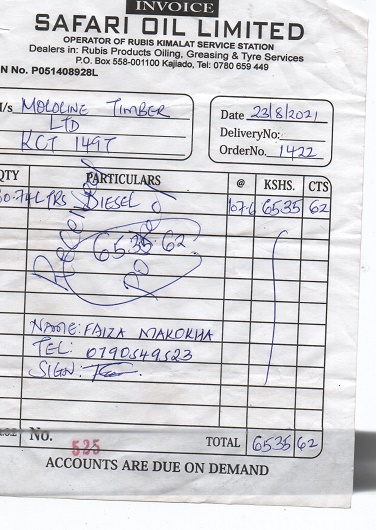 INVOICE
SAFARI OIL LIMITED
OPERATOR OF RUBIS KIMALAT SERVICE STATION
Dealers in: Rubis Products Oiling, Greasing & Tyre Services
P.O. Box 558-001100 Kajiado, Tel: 0780 659 449
N No. P051408928L
/s MOLOLINE TIMBER
LTD
KCT 149T
Date 23/8/2021
DeliveryNo:
OrderNo. 1422
QTY PARTICULARS @ KSHS. CTS
60.74 LTRS DIESEL 107.6 6535 62
6535.62
NAME: FAIZA MAKOKHA
TEL: 0790549523
SIGN:
No. 525 TOTAL 6535 62
ACCOUNTS ARE DUE ON DEMAND